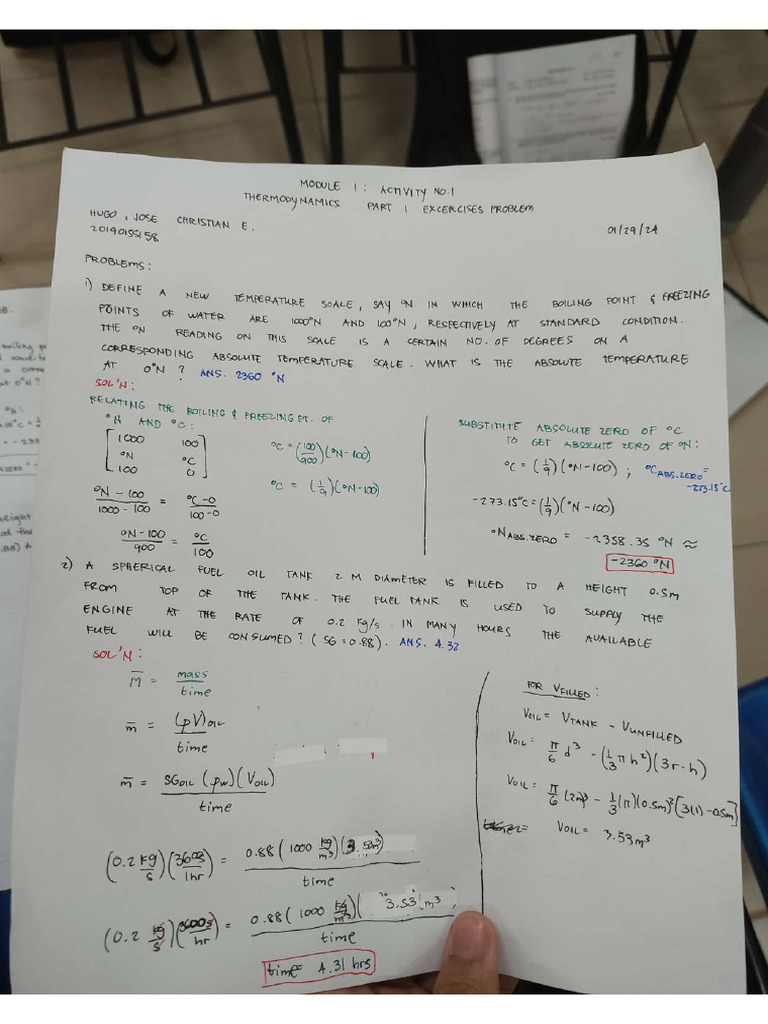 MODULE 1: ACTIVITY NO.1
THERMODYNAMICS PART 1 EXCERCISES PROBLEM
HUGO, JOSE CHRISTIAN E.
01/29/24
PROBLEMS:
1) DEFINE A NEW TEMPERATURE SCALE, SAY °N IN WHICH THE BOILING POINT & FREEZING
POINTS OF WATER ARE 1000°N AND 100°N, RESPECTIVELY AT STANDARD CONDITION.
THE °N READING ON THIS SCALE IS A CERTAIN NO. OF DEGREES ON A
CORRESPONDING ABSOLUTE TEMPERATURE SCALE. WHAT IS THE ABSOLUTE TEMPERATURE
AT 0°N? ANS. 2360 °N
SOL'N:
RELATING THE BOILING & FREEZING PT. OF
°N AND °C:
[1000 100]
[°N °C]
[100 0]
°C = (100/900)(°N-100)
°C = (1/9)(°N-100)
(°N - 100)/(1000 - 100) = (°C - 0)/(100 - 0)
(°N - 100)/900 = °C/100
SUBSTITUTE ABSOLUTE ZERO OF °C
TO GET ABSOLUTE ZERO OF °N:
°C = (1/9)(°N - 100) ; °C ABS.ZERO = -273.15°C
-273.15°C = (1/9)(°N - 100)
°N ABS.ZERO = -2358.35 °N ≈
-2360 °N
2) A SPHERICAL FUEL OIL TANK 2 M DIAMETER IS FILLED TO A HEIGHT 0.5m
FROM TOP OF THE TANK. THE FUEL TANK IS USED TO SUPPLY THE
ENGINE AT THE RATE OF 0.2 Kg/s. IN MANY HOURS THE AVAILABLE
FUEL WILL BE CONSUMED? (SG=0.88). ANS. 4.32
SOL'N:
M̅ = mass/time
m̅ = (ρV)OIL/time
m̅ = SGOIL (ρw)(VOIL)/time
(0.2 Kg/s)(3600s/1hr) = 0.88(1000 Kg/m³)(3.53m³)/time
(0.2 Kg/s)(3600s/hr) = 0.88(1000 Kg/m³)(3.53 m³)/time
time = 4.31 hrs
FOR VFILLED:
VOIL = VTANK - VUNFILLED
VOIL = π/6 d³ - (1/3 πh²)(3r-h)
VOIL = π/6 (2m)³ - 1/3 (π)(0.5m)² [3(1) - 0.5m]
VOIL = 3.53m³